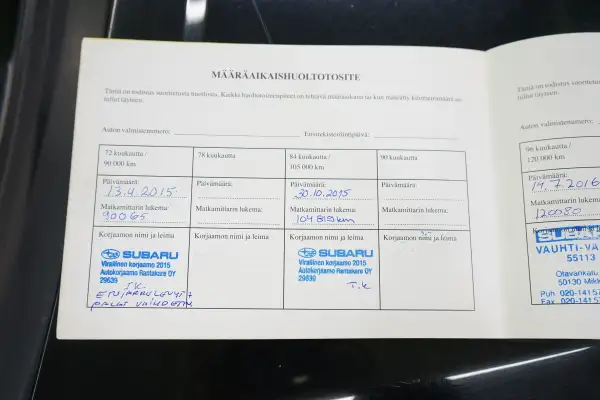 MÄÄRÄAIKAISHUOLTOTOSITE
Tämä on todistus suoritetusta huollosta. Kaikki huoltotoimenpiteet on tehtävä määräaikana tai kun määrätty kilometrimäärä on
tullut täyteen.
Auton valmistenumero:
Ensirekisteröintipäivä:
72 kuukautta /
90 000 km
78 kuukautta
84 kuukautta /
105 000 km
90 kuukautta
Päivämäärä:
13.4.2015
Päivämäärä:
Päivämäärä:
30.10.2015
Päivämäärä:
Matkamittarin lukema:
90065
Matkamittarin lukema:
Matkamittarin lukema:
104819km
Matkamittarin lukema:
Korjaamon nimi ja leima
SUBARU
Virallinen korjaamo 2015
Autokorjaamo Rantakare OY
29639
T.K
ETUJARRULEVYT +
PALAT VAIHDETTU
Korjaamon nimi ja leima
Korjaamon nimi ja leima
SUBARU
Virallinen korjaamo 2015
Autokorjaamo Rantakare OY
29639
T.K
Korjaamon nimi ja leima
Tämä on todistus
tullut täyteen.
Auton valmistenumero:
96 kuukautta /
120 000 km
Päivämäärä:
14.7.2016
Matkamittarin
120080
SUBA
VAUHTI-VA
55113
Otavankatu
50130 Mikk
Puh 020-1415
Fax 020-1415